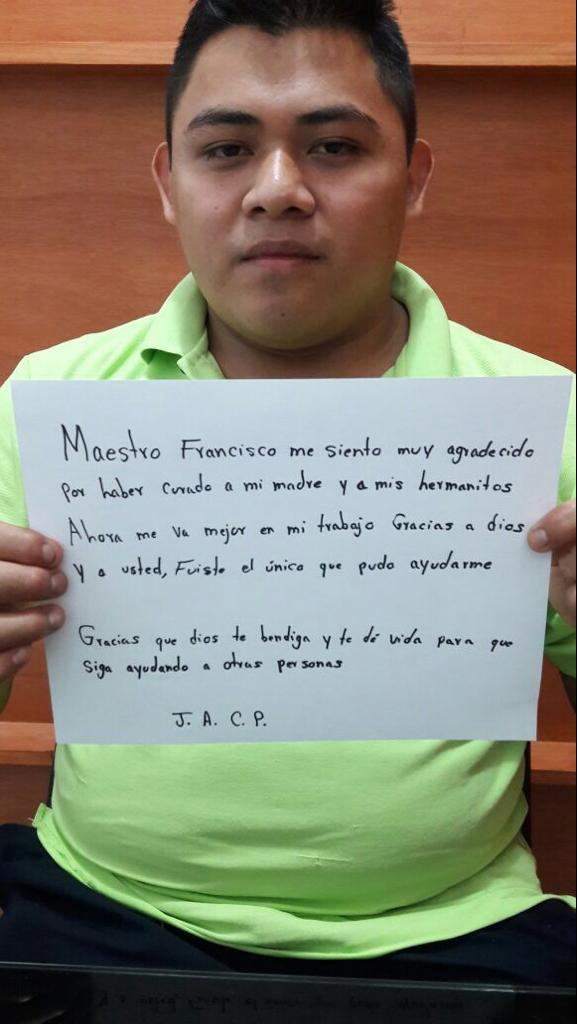 Maestro Francisco me siento muy agradecido
por haber curado a mi madre y a mis hermanitos
Ahora me va mejor en mi trabajo Gracias a dios
y a usted, Fuiste el único que pudo ayudarme
Gracias que dios te bendiga y te dé vida para que
siga ayudando a otras personas
J. A. C. P.